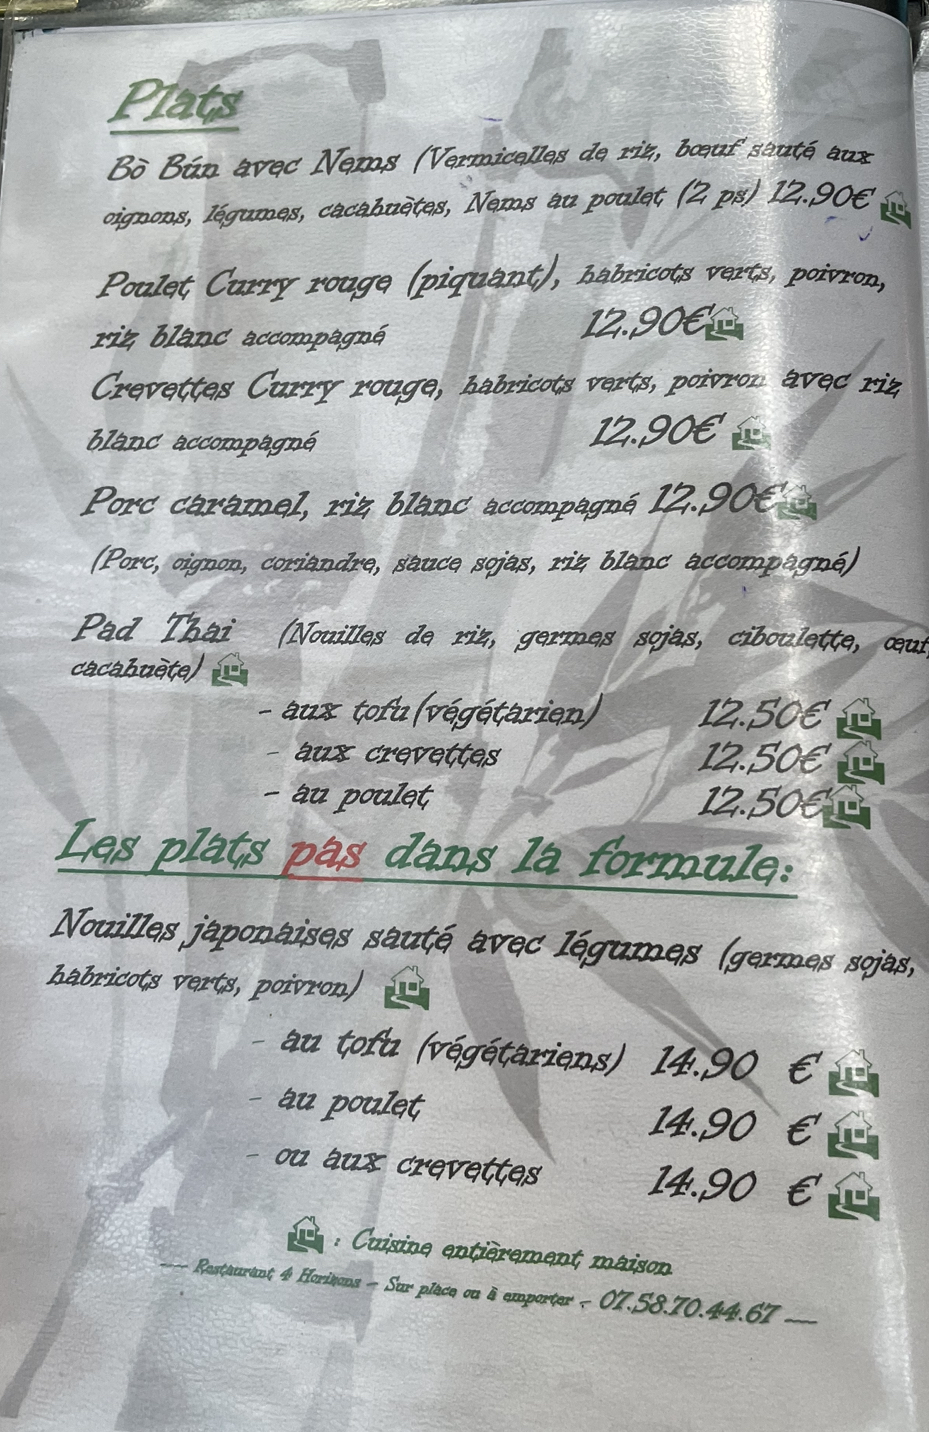 Plats
Bò Bún avec Nems (Vermicelles de riz, bœuf sauté aux
oignons, légumes, cacahuètes, Nems au poulet (2 ps) 12.90€
Poulet Curry rouge (piquant), habricots verts, poivron,
riz blanc accompagné 12.90€
Crevettes Curry rouge, habricots verts, poivron avec riz
blanc accompagné 12.90€
Porc caramel, riz blanc accompagné 12.90€
(Porc, oignon, coriandre, sauce sojas, riz blanc accompagné)
Pad Thai (Nouilles de riz, germes sojas, ciboulette, œuf,
cacahuète)
- aux tofu (végétarien) 12.50€
- aux crevettes 12.50€
- au poulet 12.50€
Les plats pas dans la formule:
Nouilles japonaises sauté avec légumes (germes sojas,
habricots verts, poivron)
- au tofu (végétariens) 14.90 €
- au poulet 14.90 €
- ou aux crevettes 14.90 €
: Cuisine entièrement maison
--- Restaurant 4 Horizons - Sur place ou à emporter - 07.58.70.44.67 ---